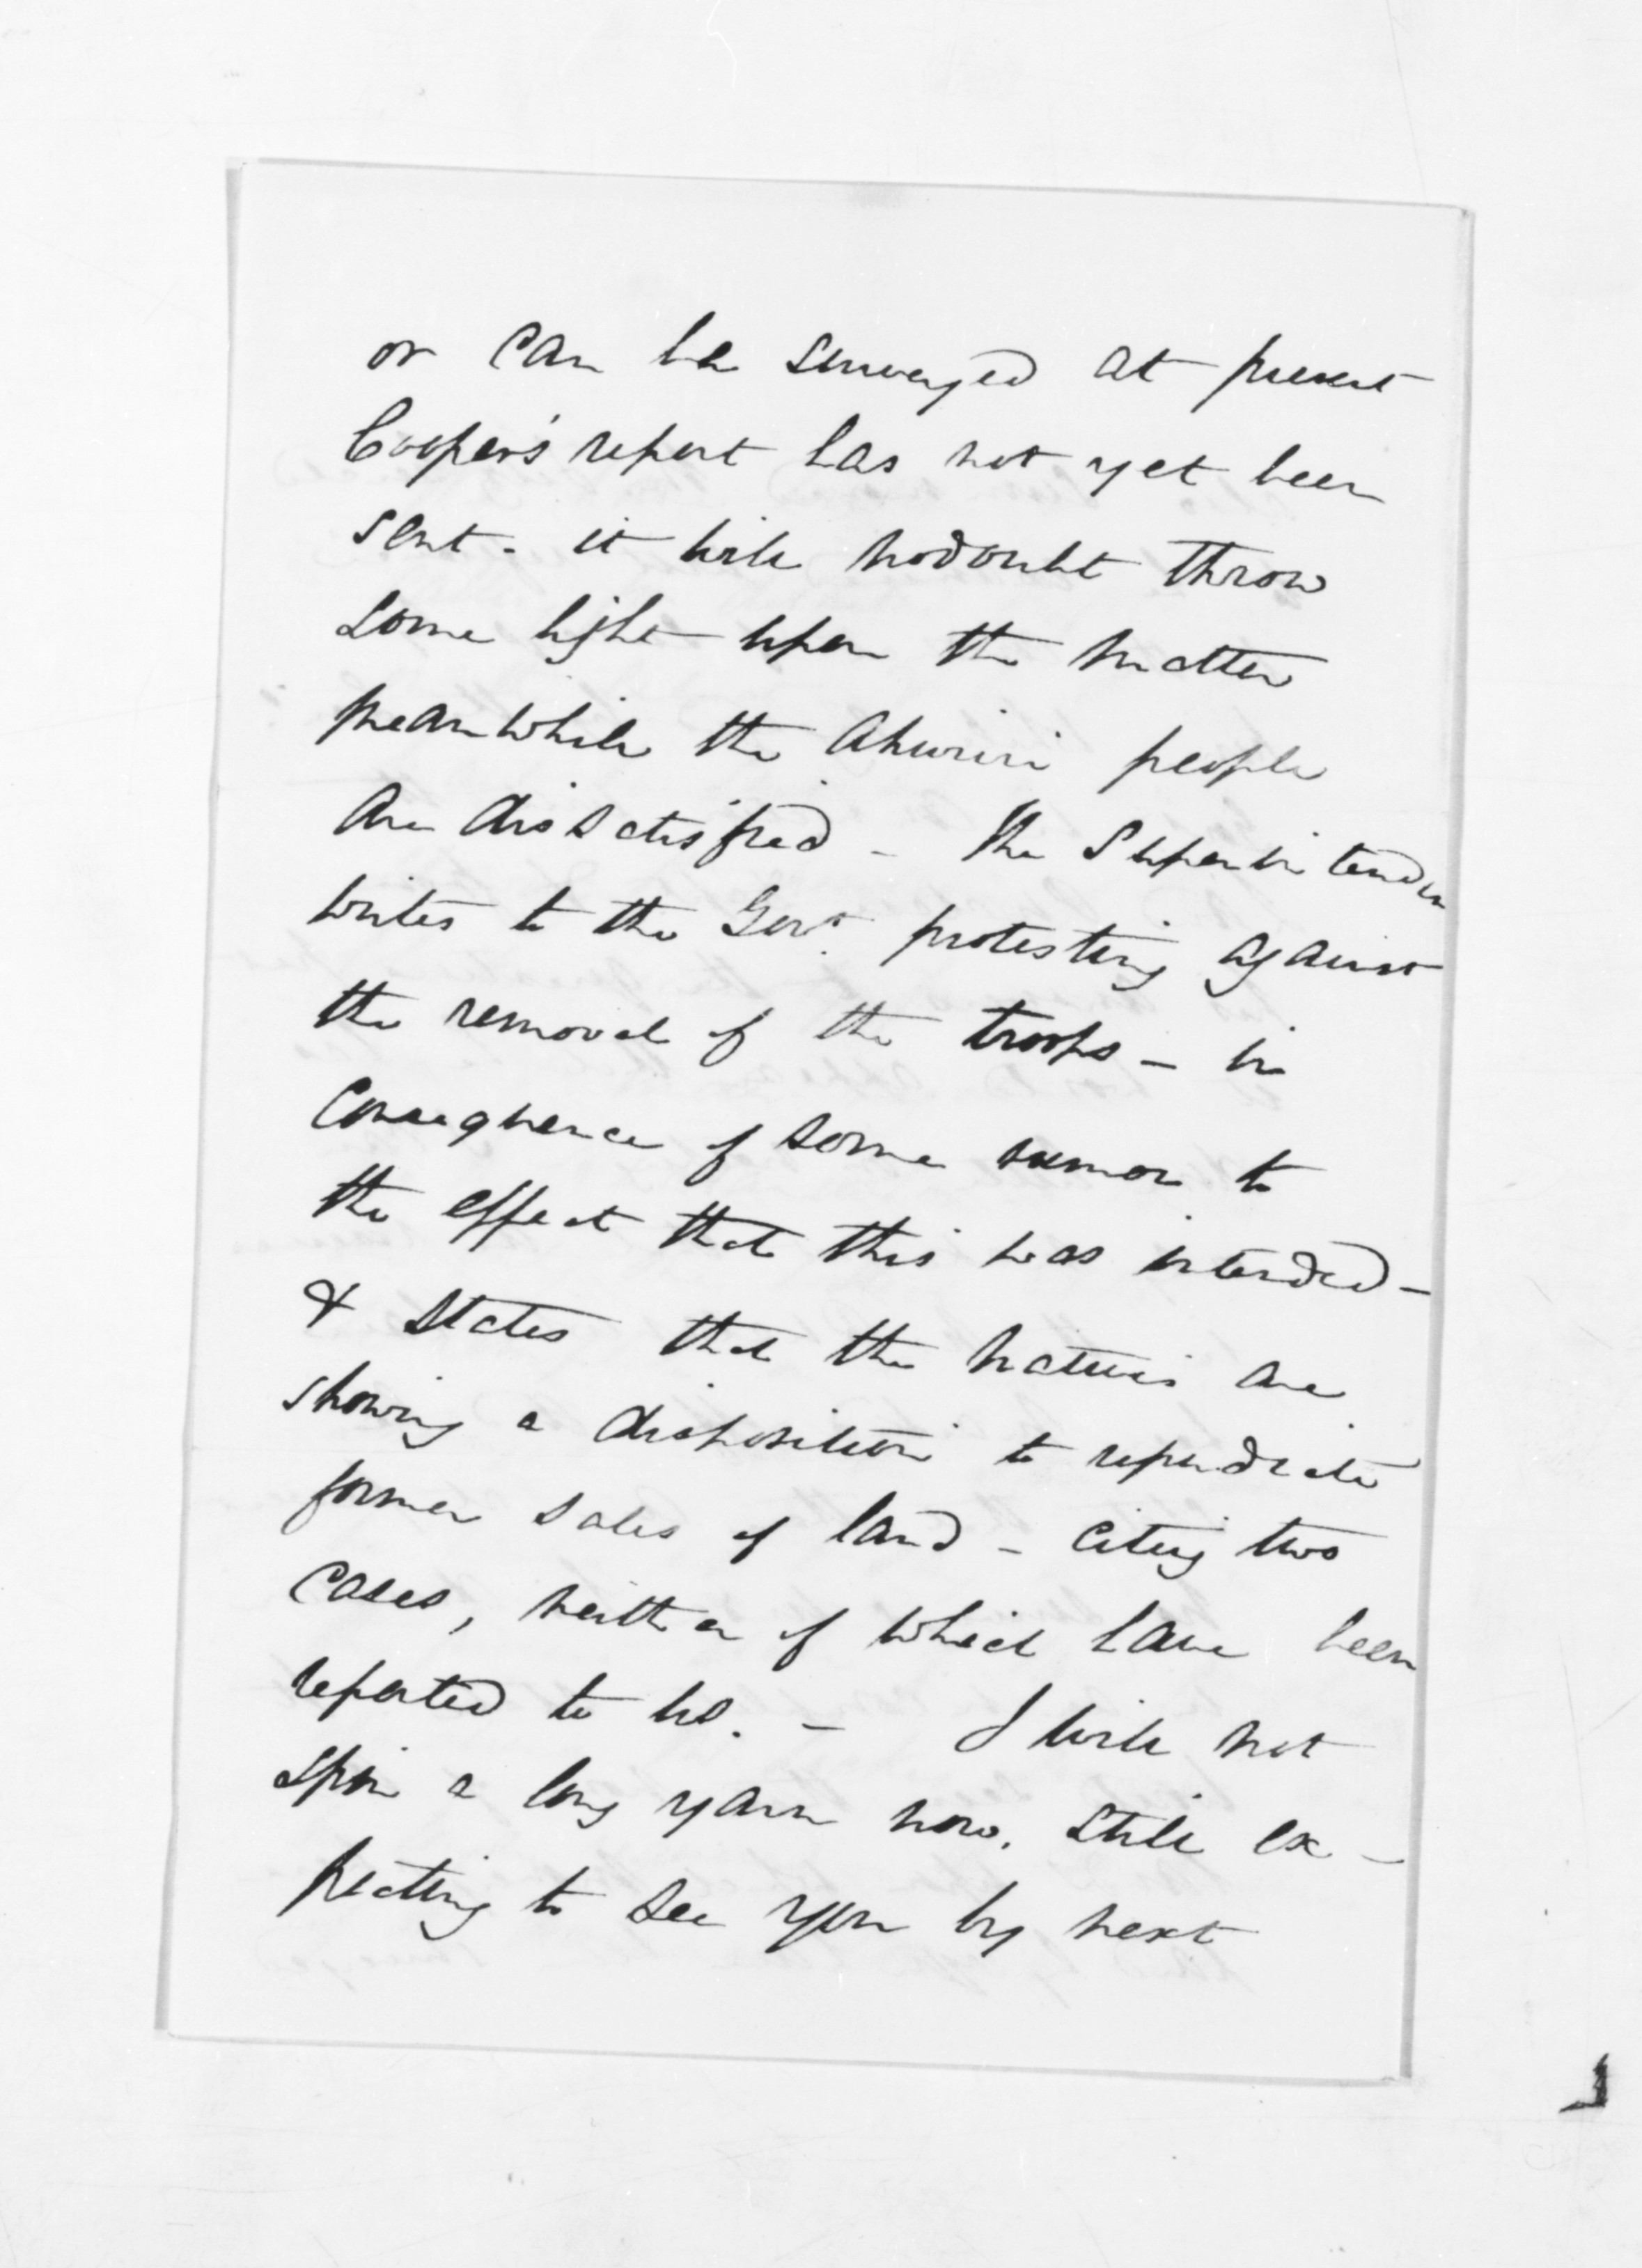 or can be surveyed at present
Cooper's report has not yet been
sent. it will nodoubt throw
some light upon the matter
meanwhile the Ahuriri people
are dissatisfied - The Superintenden
writes to the Govt. protesting against
the removal of the troops - in
consequence of some rumor to
the effect that this was intended -
& states that the natives are
showing a disposition to repudiate
former sales of land - citing two
cases, neither of which have been
reported to us. - I will not
spin a long yarn now, still ex-
pecting to see you by next